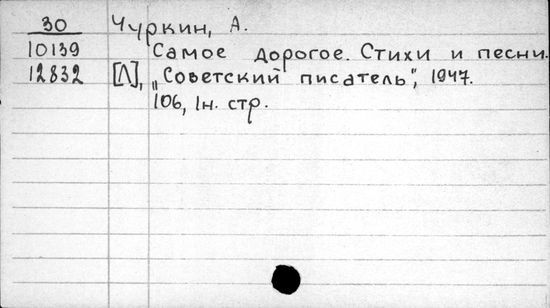 30 Чуркин, А.
10139 Самое дорогое. Стихи и песни.
12832 [Л], „Советский писатель", 1947.
106, 1н. стр.